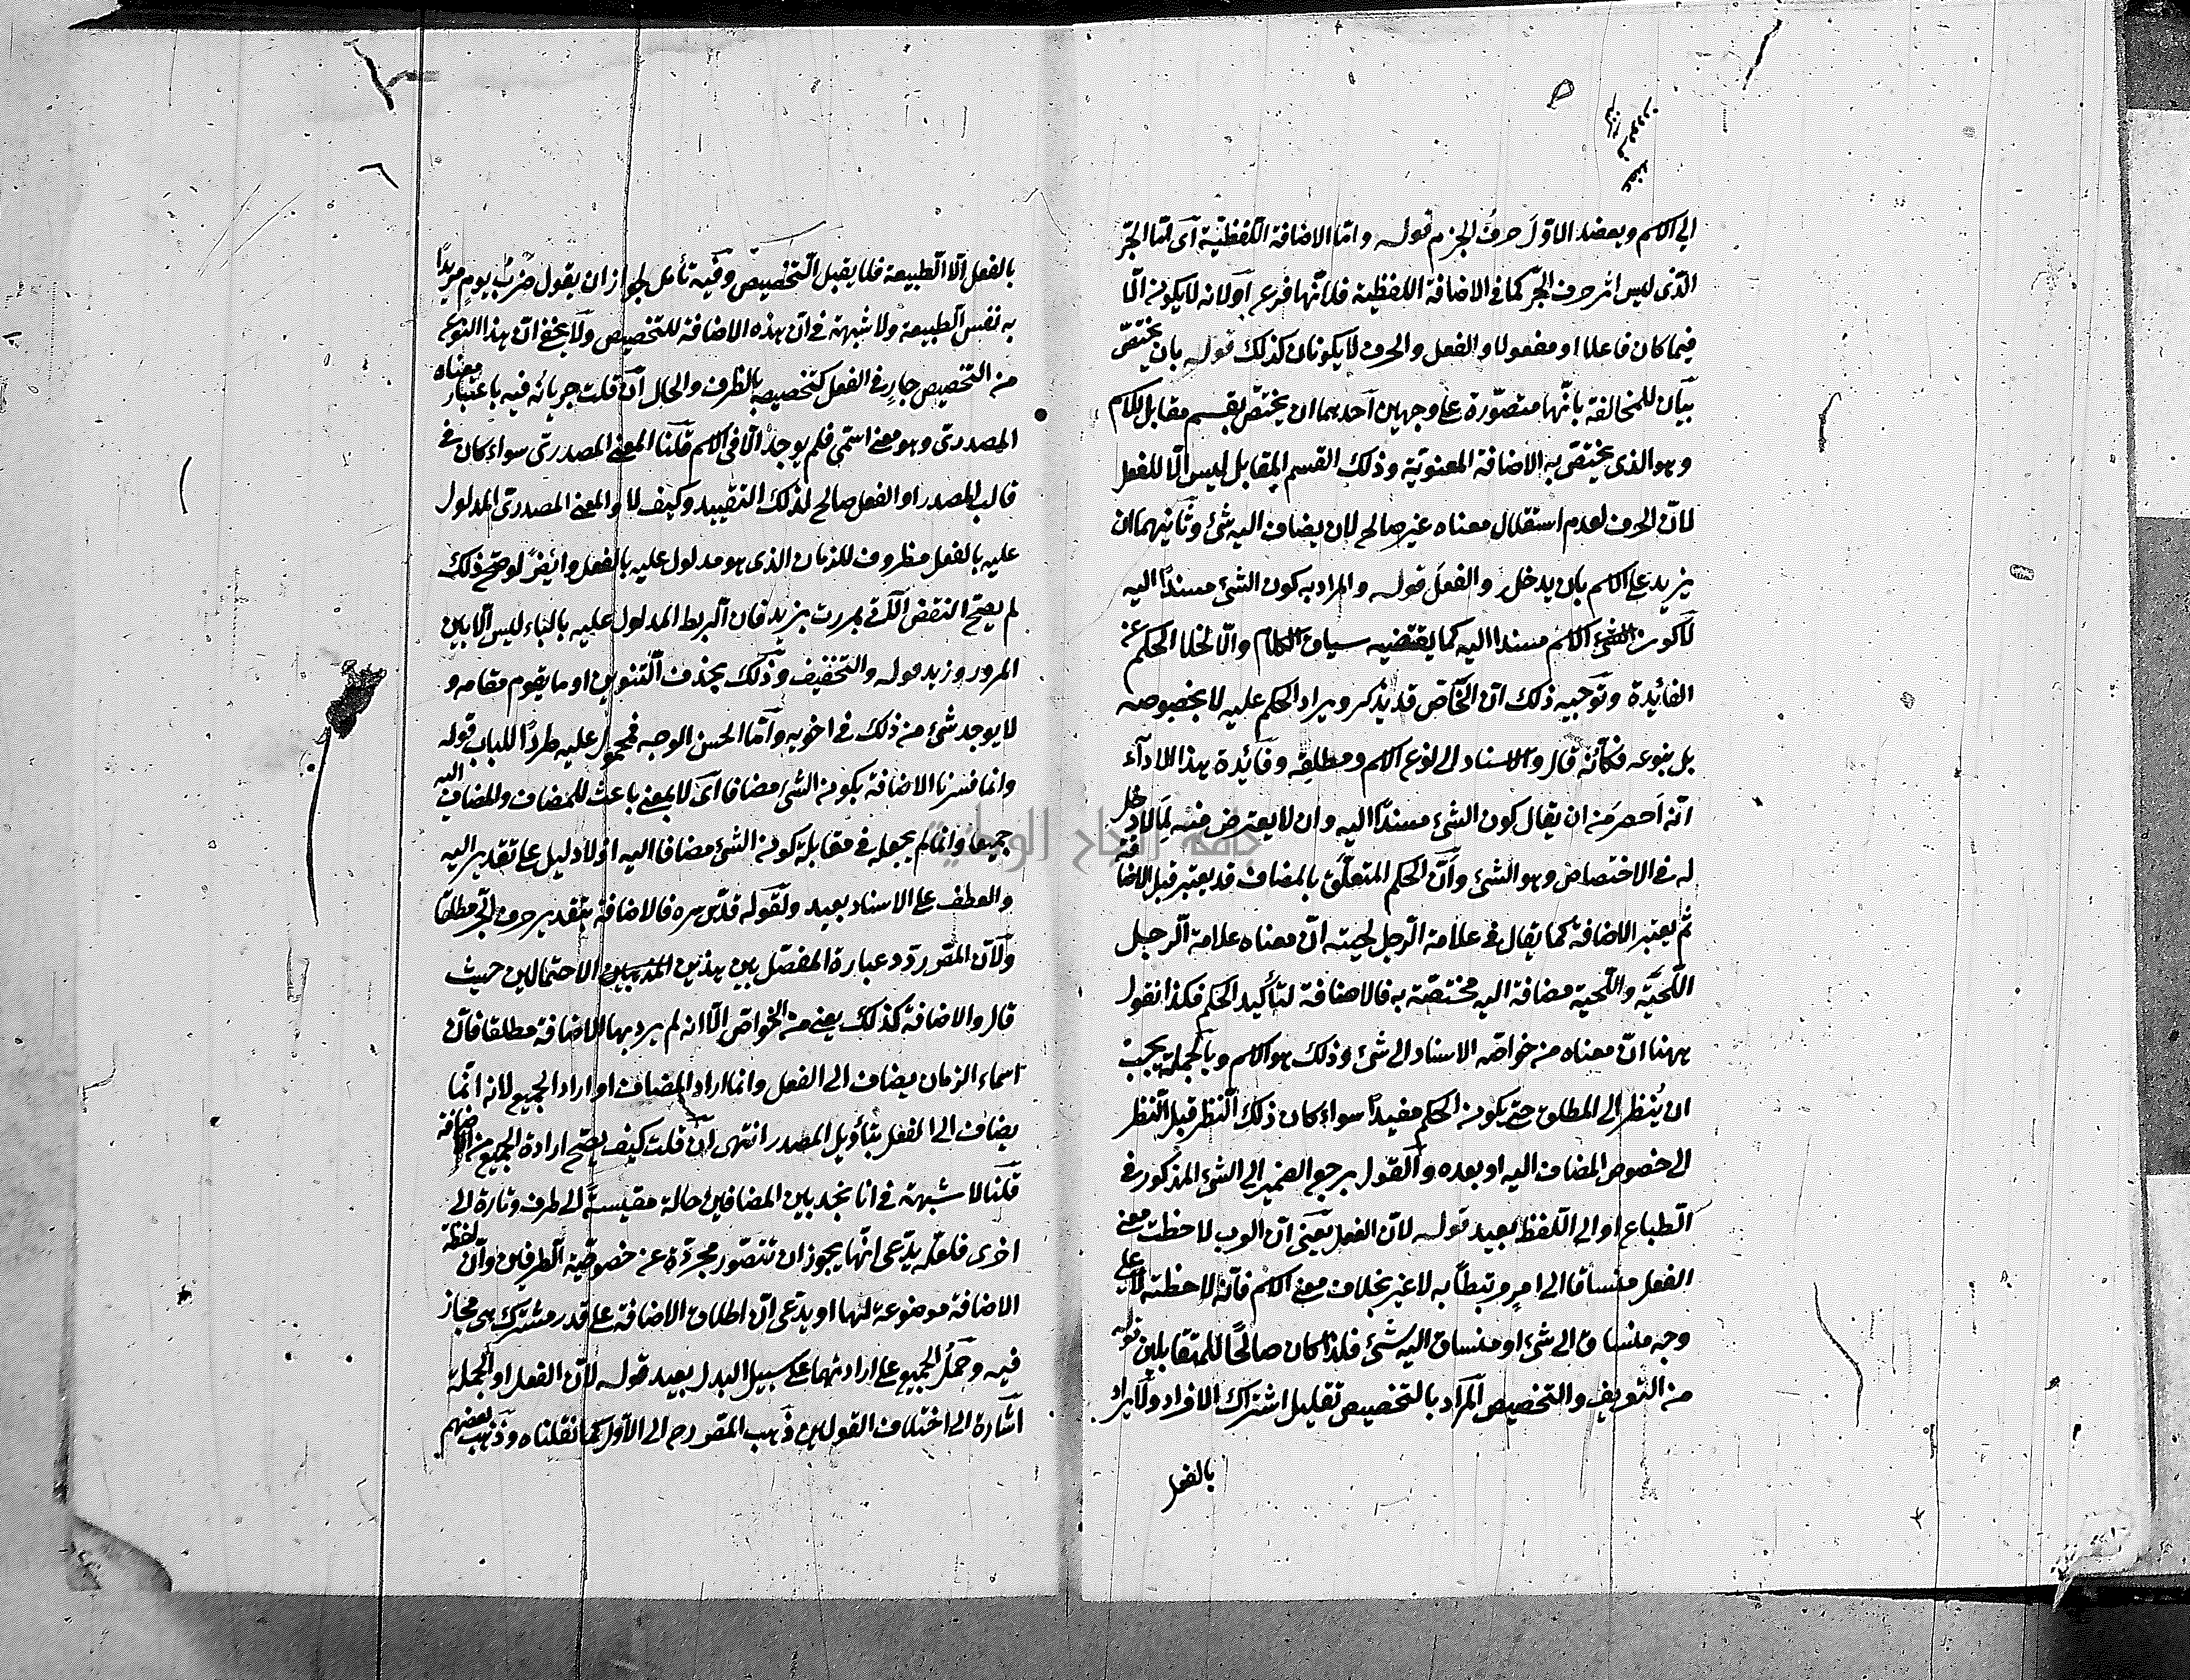 الى الاسم ويعضد الاوّل حرفُ الجزم قوله واما الاضافة اللفظية آى امّا الجرّ
الذى ليس اثر حرف الجرّ كما فى الاضافة اللفظية فلانّها فرع آولانه لا يكون الّا
فيما كان فاعلا او مفعولا والفعل والحرف لا يكونان كذلك قوله بان يختصّ
بيان للمخالفة بانّها متصوّرة على وجهين آحدهما ان يختصّ بقسم مقابل للاسم
وهو الذى يختصّ به الاضافة المعنويّة وذلك القسم المقابل ليس الّا للفعل
لانّ الحرف لعدم استقلال معناه غير صالح لان يضاف اليه شئ وثانيهما ان
يزيد على الاسم بان يدخله والفعل قوله والمراد به كون الشئ مسندًا اليه
لا كون الشئ الاسم مسندا اليه كما يقتضيه سياق الكلام والّا لخلا الحكم عن
الفائدة وتوجيه ذلك انّ الخاصّ قد يذكر ويراد الحكم عليه لا بخصوصه
بل بنوعه فكأنّه قال والاسناد الى نوع الاسم ومطلقِه وفائدة هذا الاداء
انّه اَحصر مَن ان يقال كون الشئ مسندًا اليه وان لا يعترض فيه لِمَا لا دخل
له فى الاختصاص وهو الشئ وأنّ الحكم المتعلّق بالمضاف قد يعتبر قبل الاضافة
ثم يعتبر الاضافة كما يقال فى علامة الرّجل لحيته انّ معناه علامة الرجل
اللحيَة واللّحية مضافة اليه مختصّة به فالاضافة لتأكيد الحكم فكذا نقول
ههنا انّ معناه من خواصّه الاسناد الى شئ وذلك هو الاسم وبالجملة يجب
ان يُنظر الى المطلق حتى يكون الحكم مفيدًا سواء كان ذلك النظر قبل النّظر
الى خصوص المضاف اليه او بعده والقول برجوع الضمير الى الشئ المذكور فى
الطباع او الى اللفظ بعيد قوله لانّ الفعل يَعنى انّ العرب لاحظت معنى
الفعل منساقا الى امرٍ مرتبطًا به لا غير بخلاف معنى الاسم فانّه لاحظته لا على
وجه منساق الى شئ او منساق اليه شئ فلذا كان صالحًا للمتقابلين قوله
من التعريف والتخصيص المراد بالتخصيص تقليل اشتراك الافراد ولا يراد
بالفعل
بالفعل الّا الطبيعة فلا يقبل التخصيص وفيه تأمل لجواز ان يقول ضربُ يومٍ مريدًا
به نفس الطبيعة ولا شبهة فى انّ هذه الاضافة للتخصيص ولا يخفى انّ هذا النوع
من التخصيص جارٍ فى الفعل كتخصيصه بالظرف والحال آن قلت جريانه فيه باعتبار معناه
المصدرىّ وهو معنى اسمّى فلم يوجد الّا فى الاسم قلنا المعنى المصدرىّ سواء كان فى
قالب المصدر او الفعل صالح لذلك التقييد وكيف لا والمعنى المصدرىّ المدلول
عليه بالفعل مظروف للزمان الذى هو مدلول عليه بالفعل وايضًا لو صح ذلك
لم يصحّ النقض الّذى بمررت بزيد فان الربط المدلول عليه بالباء ليس الّا بين
المرور وزيد قوله والتخفيف وذلك بحذف التنوين او ما يقوم مقامه و
لا يوجد شئ من ذلك فى اخويه وأمّا الحسن الوجه فمحمول عليه طردًا للباب قوله
وانما فسرنا الاضافة بكون الشئ مضافا آى لا بمعنى باعث للمضاف والمضاف اليه
جميعا وانما لم يجعله فى مقابلة كون الشئ مضافا اليه اذ لا دليل على تقدير اليه
والعطف على الاسناد بعيد ولقوله قدّس سره فالاضافة بتقدير حرف الجرّ مطلقا
ولانّ المصّ ردّد عبارة المفصّل بين هذين الاحتمالين حيث
قال والاضافة كذلك يعنى من الخواصّ الّا انه لم يرد بها الاضافة مطلقا فانّ
اسماء الزمان يضاف الى الفعل وانما اراد المضاف او اراد الجميع لانه انّما
يضاف الى الفعل بتأويل المصدر انتهى آن قلت كيف يصحّ ارادة الجميع من الاضافة
قلنا لا شبهة فى انا نجد بين المضافين حالة مقيسةً الى طرف وتارة الى
اخرى فلعلّه يدّعى انّها يجوز ان تتصّور مجرّدة عن خصوصّية الطرفين وانّ لفظة
الاضافة موضوعة لها او يدّعى انّ اطلاق الاضافة على قدر مشترك هى مجاز
فيه وحمل الجميع على ارادتهما على سبيل البدل بعيد قوله لانّ الفعل او الجملة
آشارة الى اختلاف القولين ذهب المصّ رح الى الاوّل كما نقلناه وذهب بعضهم
جامعة النجاح الوطنية